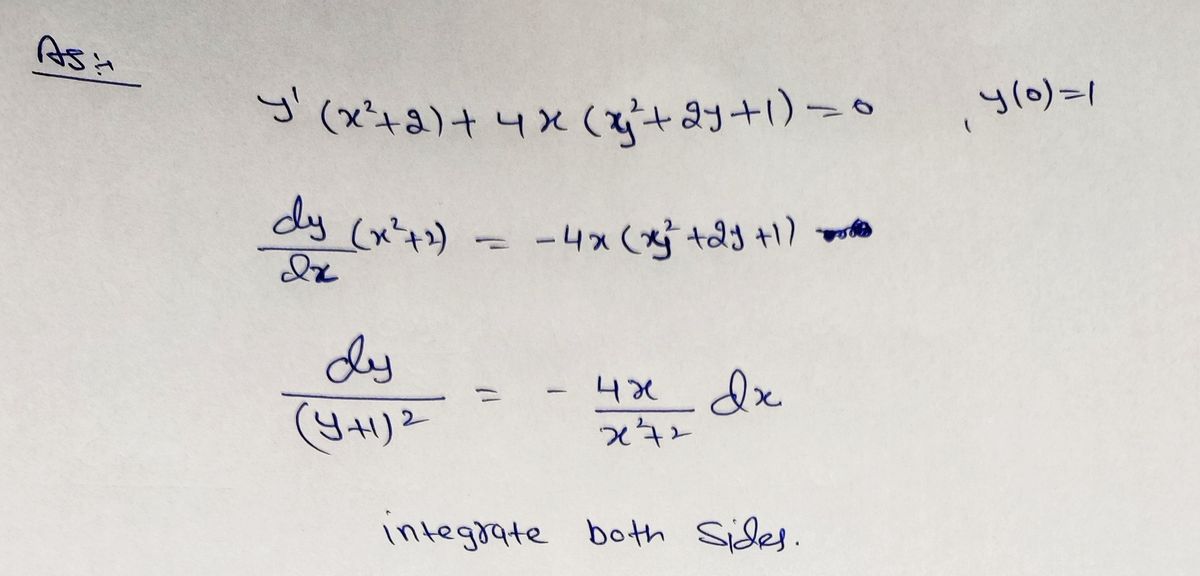 AS:-
y' (x²+2) + 4x (xy²+2y+1) = 0 , y(0)=1
dy/dx (x²+2) = -4x (xy²+2y+1)
dy/(y+1)² = - 4x/x²+2 dx
integrate both sides.